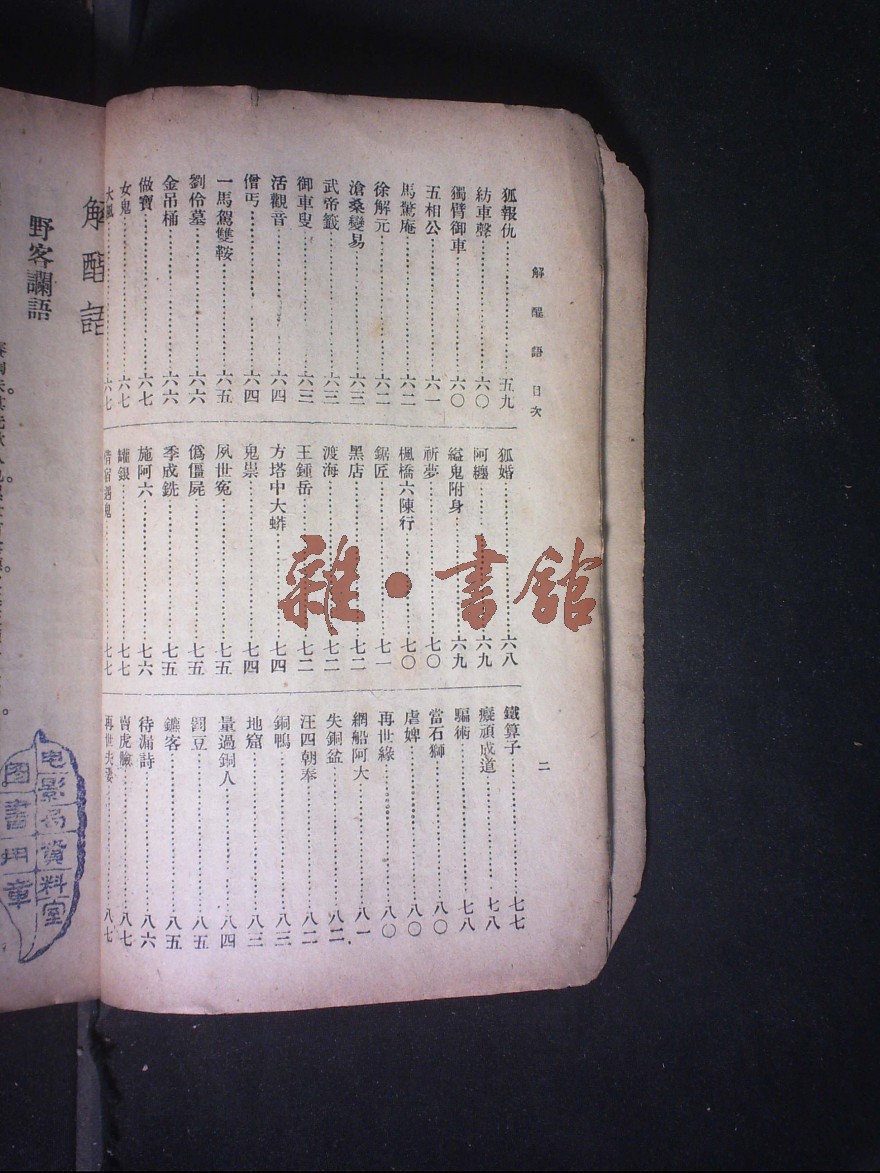 解酲語 目次
二
狐報仇……五九
紡車聲……六〇
獨臂御車……六〇
五相公……六一
馬驚庵……六二
徐解元……六二
滄桑變易……六三
武帝籤……六三
御車叟……六三
活觀音……六四
僧丐……六四
一馬駕雙鞍……六五
劉伶墓……六六
金吊桶……六六
做寶……六七
女鬼……六七
六七
狐婚……六八
阿纏……六九
縊鬼附身……六九
祈夢……七〇
楓橋六陳行……七〇
鋸匠……七一
黑店……七二
渡海……七二
王鍾岳……七二
方塔中大蟒……七四
鬼祟……七四
夙世寃……七五
僞僵屍……七五
季成銑……七五
施阿六……七六
罐銀……七七
借宿遇鬼……七七
鐵算子……七七
癡頑成道……七八
騙術……七八
當石獅……八〇
虐婢……八〇
再世緣……八〇
網船阿大……八一
失銅盆……八二
汪四朝奉……八二
銅鴨……八三
地窟……八三
量過銅人……八四
罰豆……八五
鑣客……八五
待漏詩……八六
賣虎臉……八七
再世夫妻……八七
解酲語
野客讕語
电影局資料室
图書用章
雜·書館